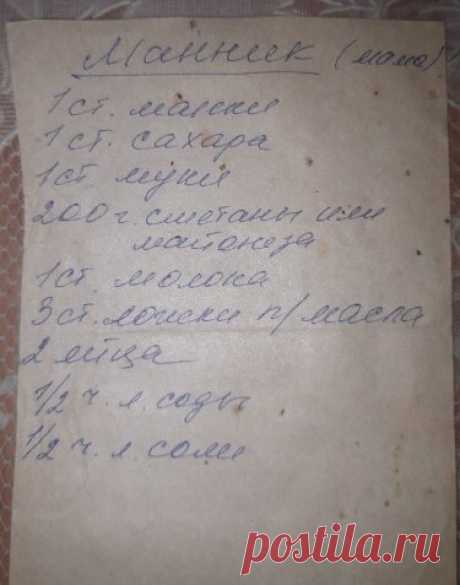 Манник (мама)
1ст. манки
1ст. сахара
1ст муки
200 г. сметаны или
майонеза
1ст. молока
3 ст. ложки п/масла
2 яйца
1/2 ч. л. соды
1/2 ч. л. соли
postila.ru